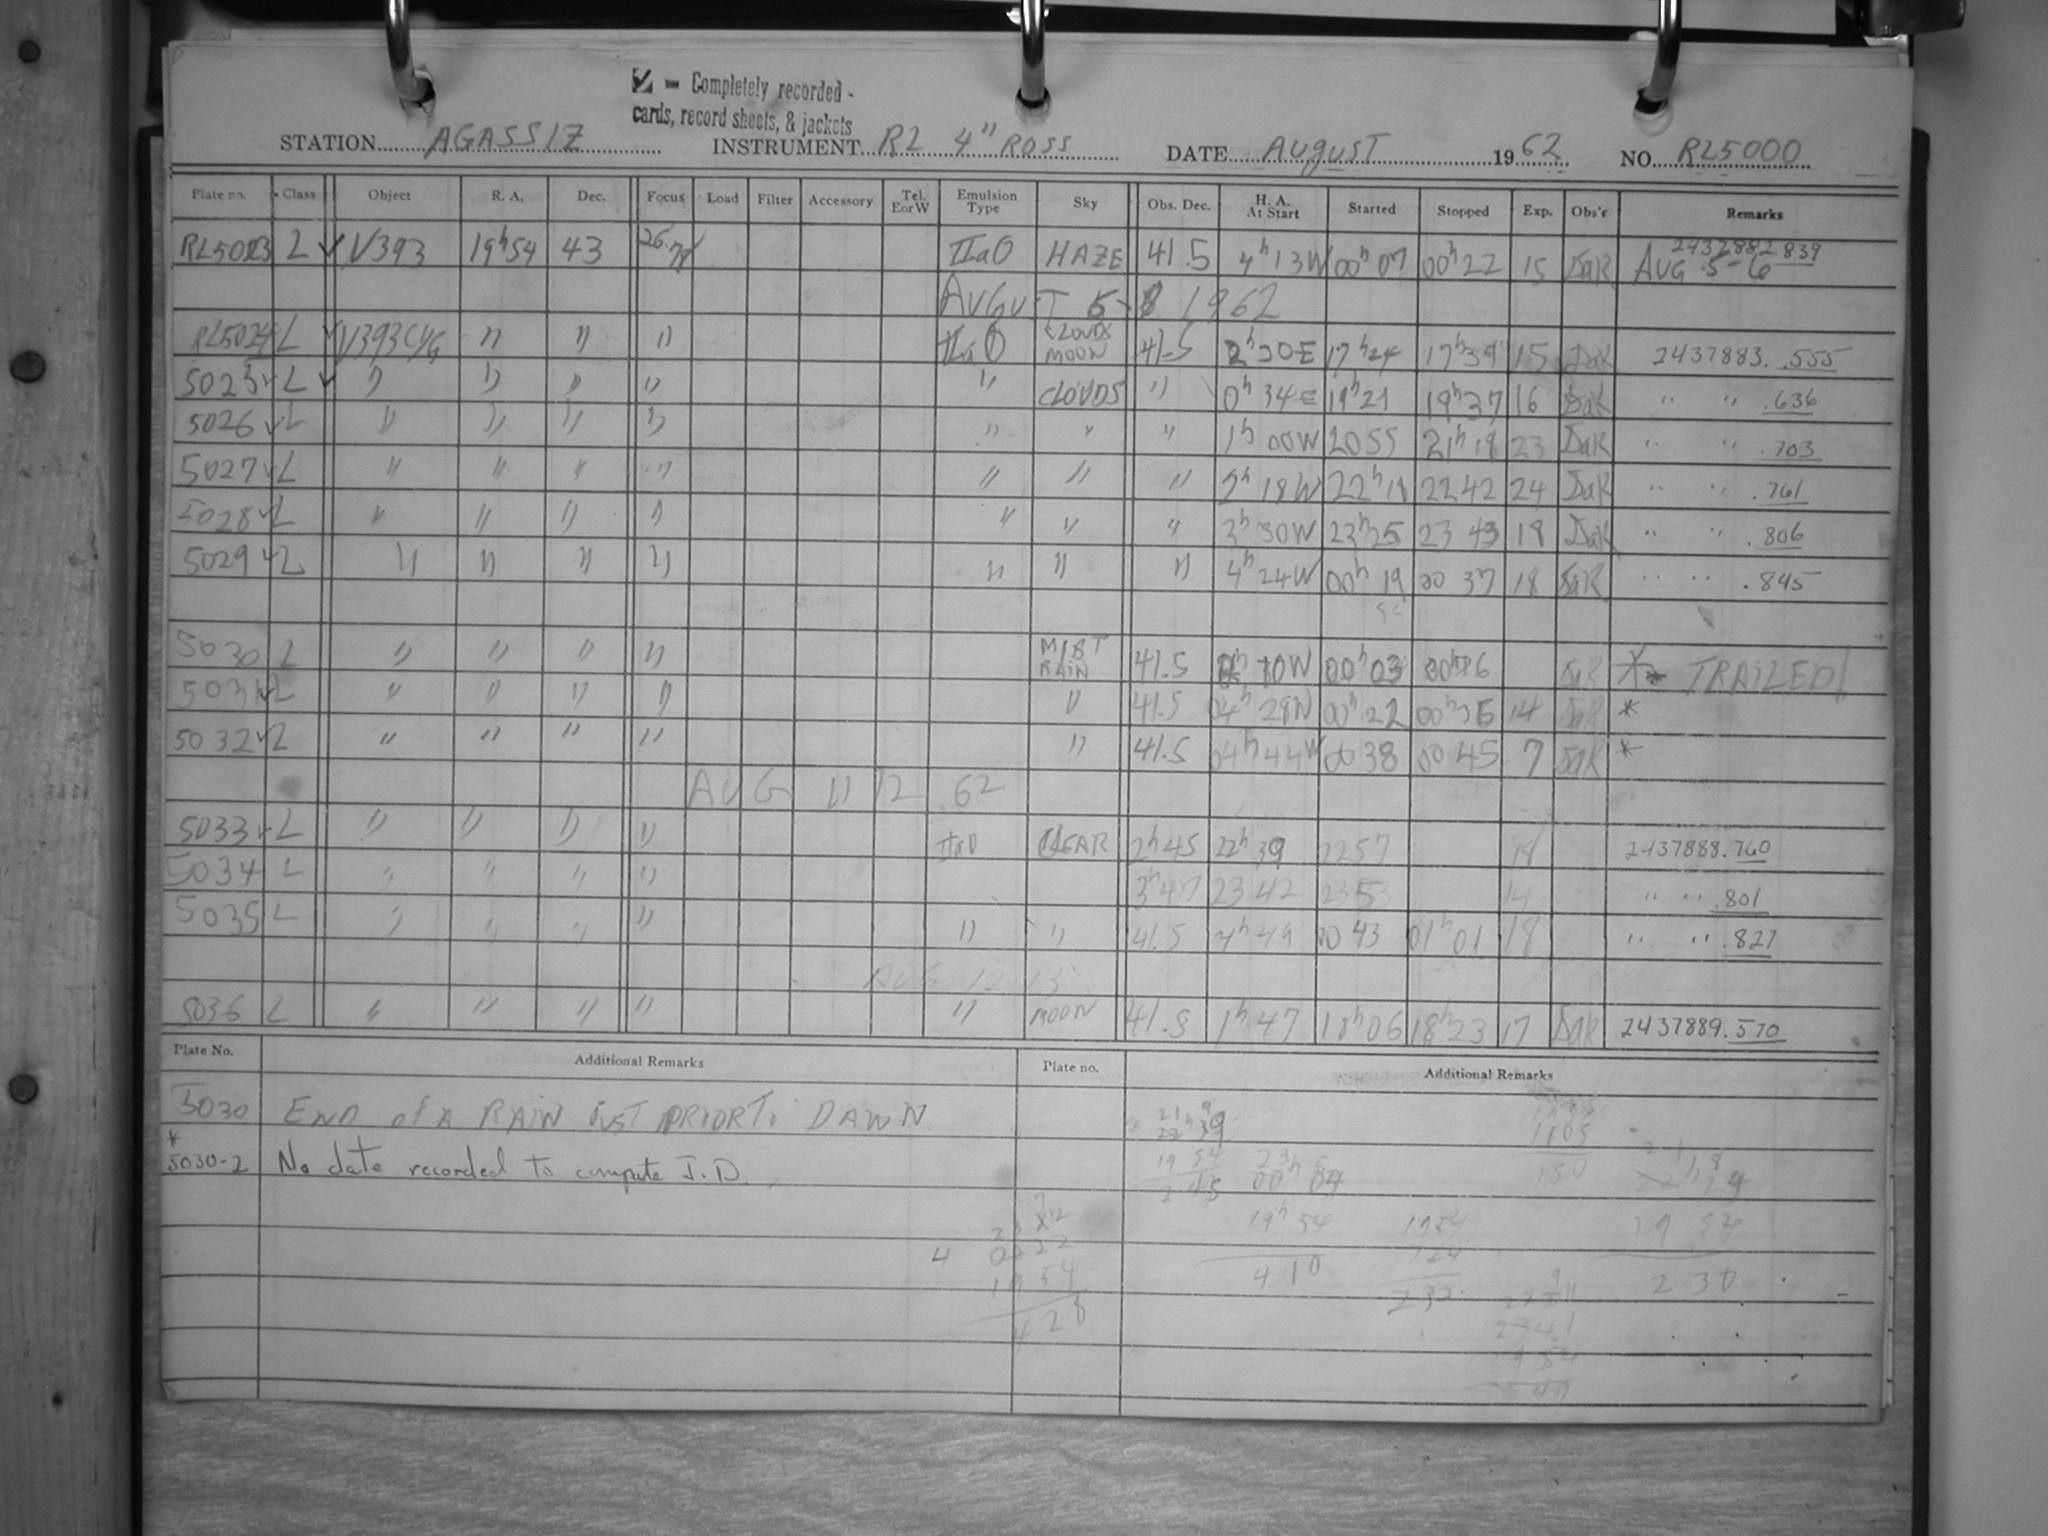 ☑ - Completely recorded -
cards, record sheets, & jackets
STATION AGASSIZ INSTRUMENT RL 4" ROSS DATE AUGUST 1962 NO. RL5000
Plate no. Class Object R. A. Dec. Focus Load Filter Accessory Tel. E or W Emulsion Type Sky Obs. Dec. H. A. At Start Started Stopped Exp. Obs'r Remarks
2437882.839
RL5023 L ✓ V393 19h54 43 IIaO HAZE 41.5 4h13W 00h07 00h22 15 JaR AUG 5-6
1962
RL5024 L ✓ V393CYG " " " IIaO CLOUDS MOON 41.5 2h30E 17h24 17h39 15 JaR 2437883. .555
5025 ✓ L ✓ " " " " " CLOUDS " 0h34E 19h21 19h37 16 JaR " " .636
5026 ✓ L " " " " " " " 1h00W 2055 21h18 23 JaR " " .703
5027 ✓ L " " " " " " " 18W 2242 24 JaR " " .761
5028 ✓ L " " " " " " " 3h30W 23h25 23 43 18 JaR " " .806
5029 ✓ L " " " " " " " 4h24W 00h19 00 37 18 JaR " " .845
5030 L " " " " MIST RAIN 41.5 00h03 JaR * TRAILED!
5031 ✓ L " " " " " 41.5 04h28W 00h22 00h36 14 JaR *
5032 ✓ L " " " " " 41.5 04h44W 00 38 00 45 7 JaR *
AUG 11 12 .62
5033 ✓ L " " " " IIaO CLEAR 2h45 22h39 2257 18 2437888.760
5034 L " " " " 3h47 2342 2353 14 " " .801
5035 L " " " " " " 41.5 4h49 00 43 01h01 18 " " .827
AUG 12 13
5036 L " " " " " MOON 41.5 1h47 18h06 18h23 17 JaR 2437889.570
Plate No. Additional Remarks Plate no. Additional Remarks
5030 END of A RAIN JUST PRIOR TO DAWN
* 5030-2 No date recorded to compute J.D.
19 54
2 45
00h04
19h54
4 10
19 54
2 30
4 28